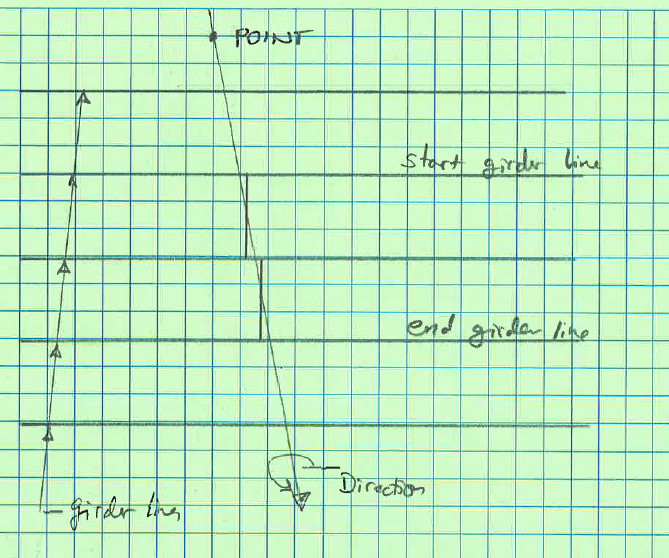 POINT
start girder line
end girder line
Direction
girder lines